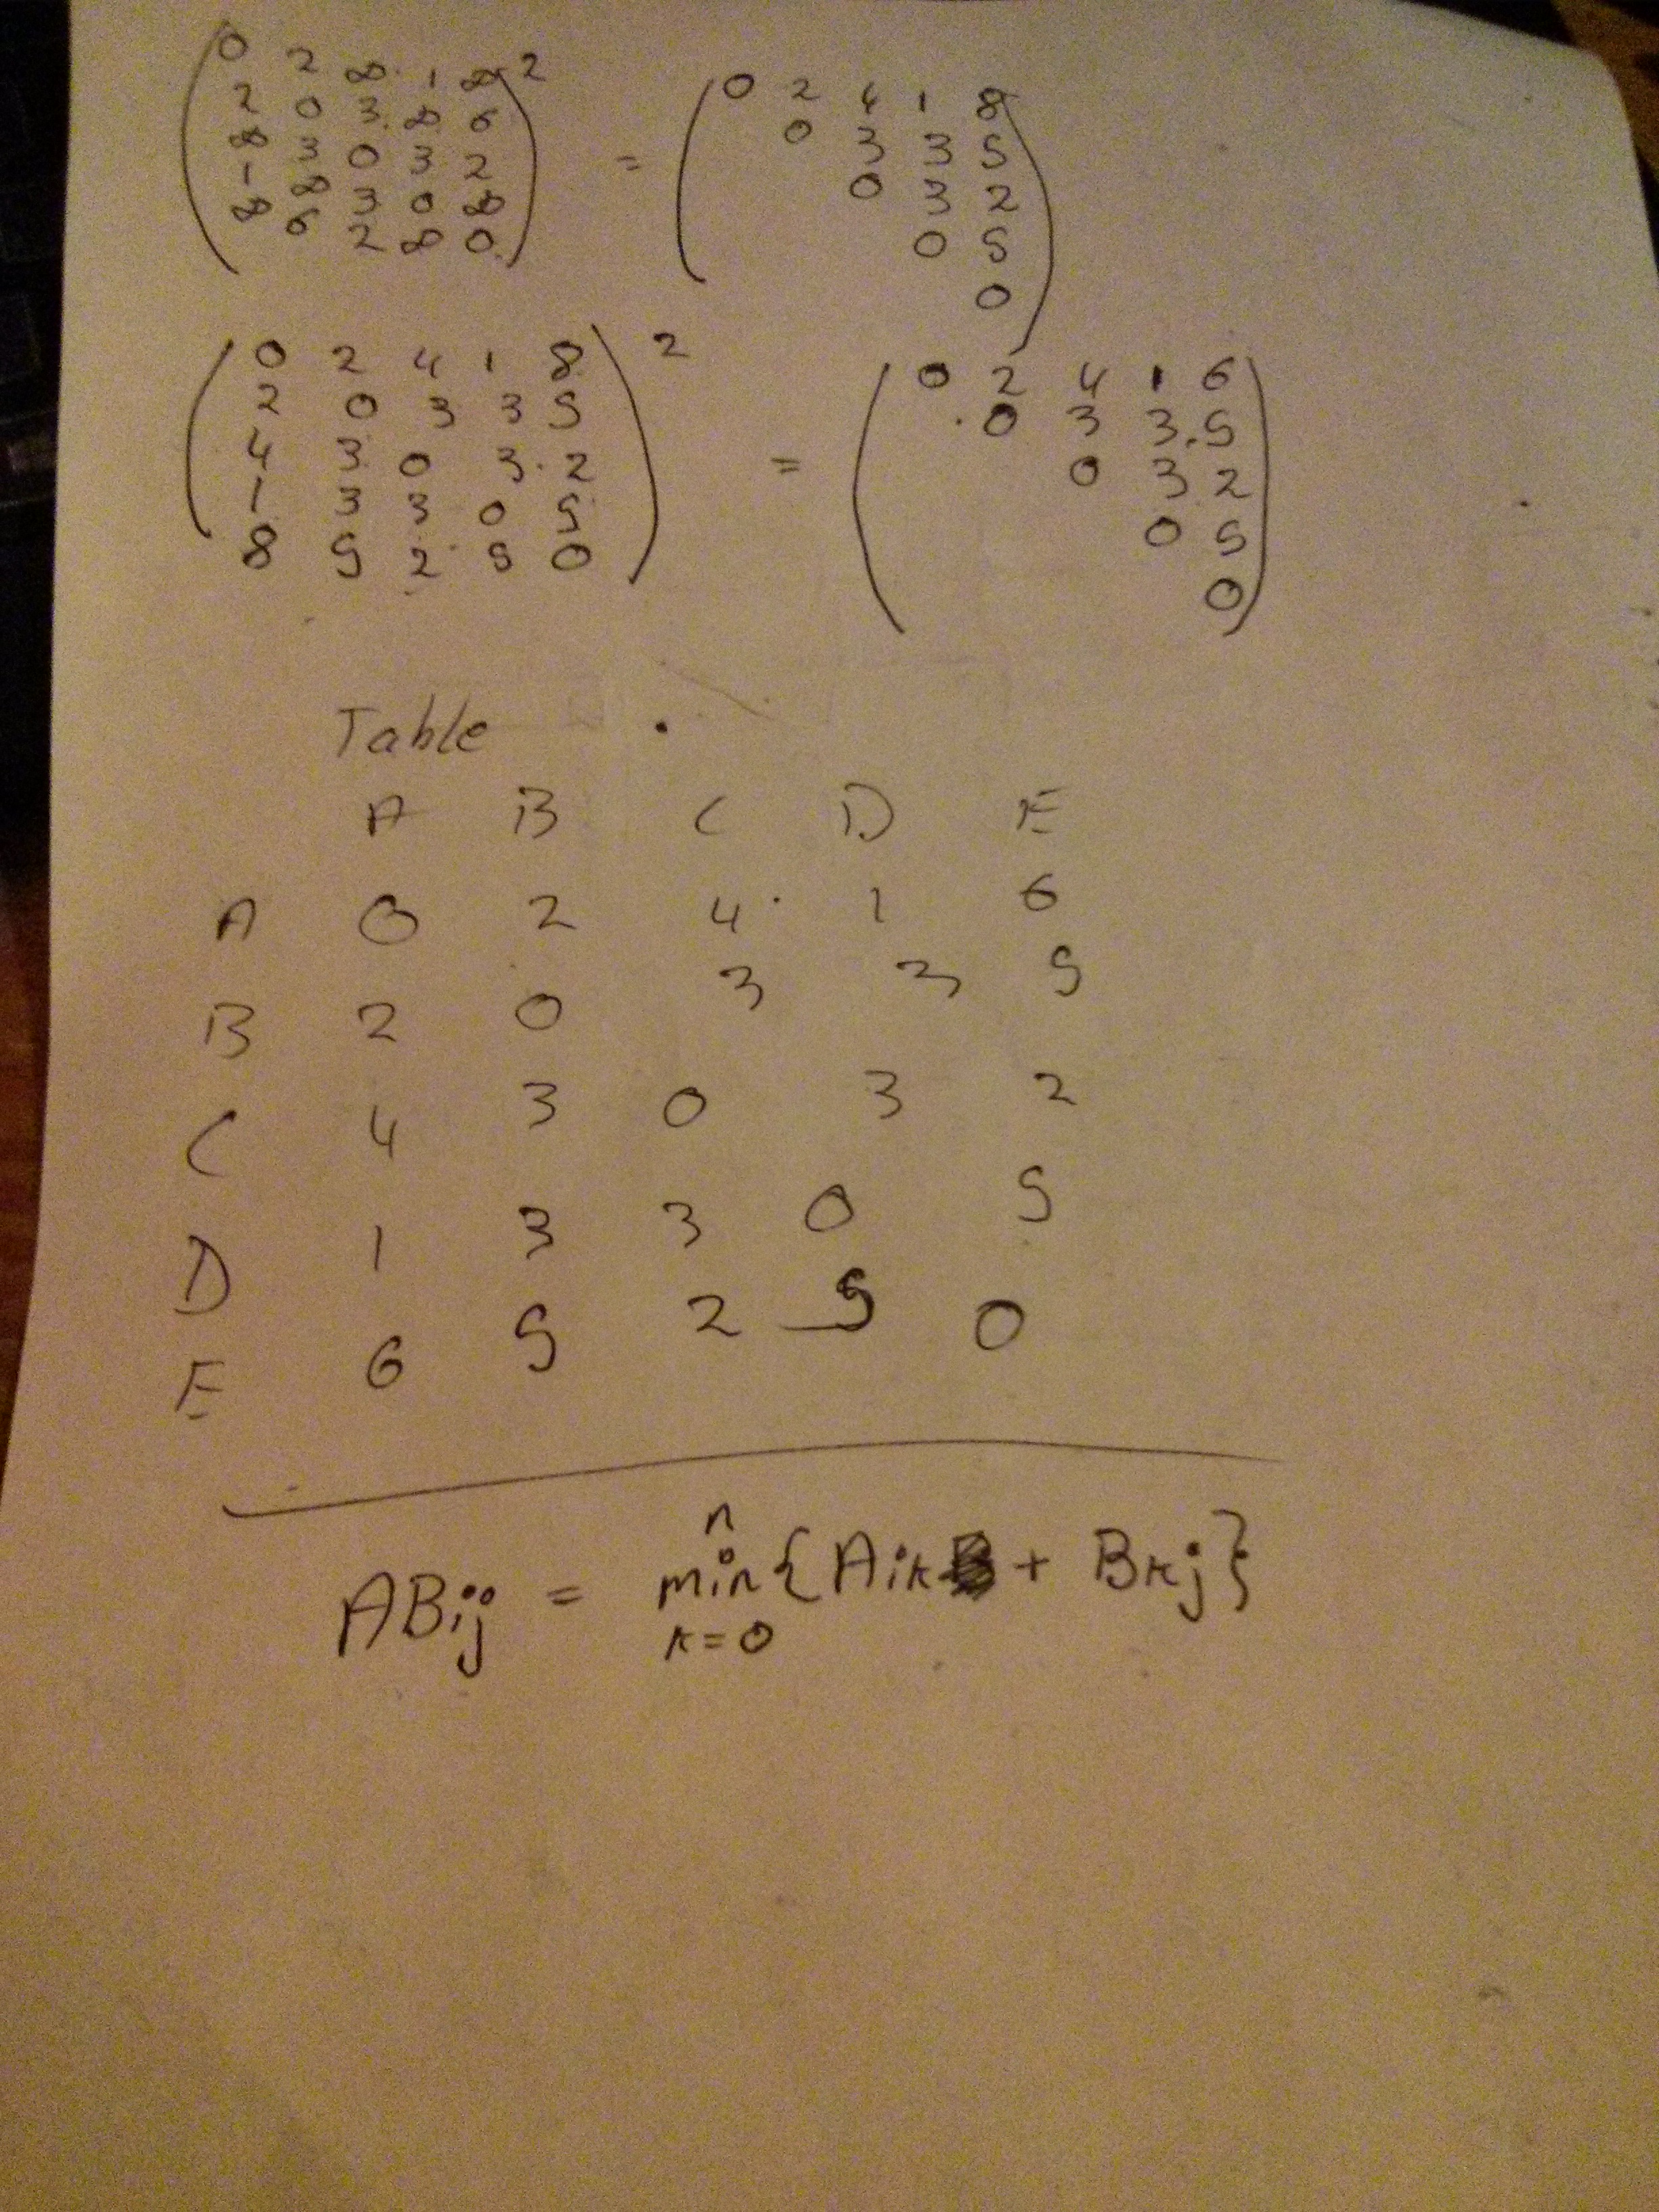 ( 0 2 ∞ 1 ∞ )²
2 0 3 ∞ 6
∞ 3 0 3 2
1 ∞ 3 0 ∞
∞ 6 2 ∞ 0
= ( 0 2 4 1 8 )
0 3 3 5
0 3 2
0 5
0
( 0 2 4 1 8 )²
2 0 3 3 5
4 3 0 3 2
1 3 3 0 5
8 5 2 5 0
= ( 0 2 4 1 6 )
0 3 3 5
0 3 2
0 5
0
Table
A B C D E
A 0 2 4 1 6
B 2 0 3 3 5
C 4 3 0 3 2
D 1 3 3 0 5
E 6 5 2 5 0
n
ABij = min { Aik + Bkj }
k=0